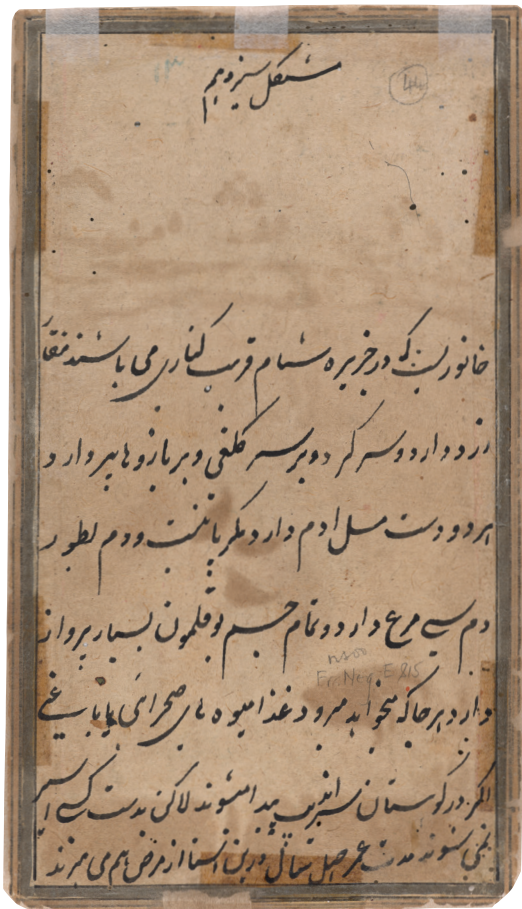 شکل سیزدهم
44
جانوریست که در جزیره شام قریب کناری می باشند منقار
زرد دارد و سر گرد و بر سر کلغی و بر بازوها پر دارد
هر دو دست مثل ادم دارد مگر پا نیست و دم بطور
دم سی مرغ دارد و تمام جسم بوقلمون بسیار پرواز
دارد هر جا که میخواهد میرود غذا میوه های صحرای یا باغی
اکثر در کوستان سراندیب پیدا میشوند لاکن بدست کسی اسیر
نمی شوند مدت عمر چهل سال درین اثنا از مرض هم می میرند